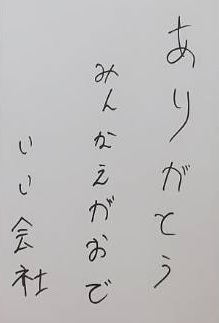 ありがとう
みんなえがおで
いい会社